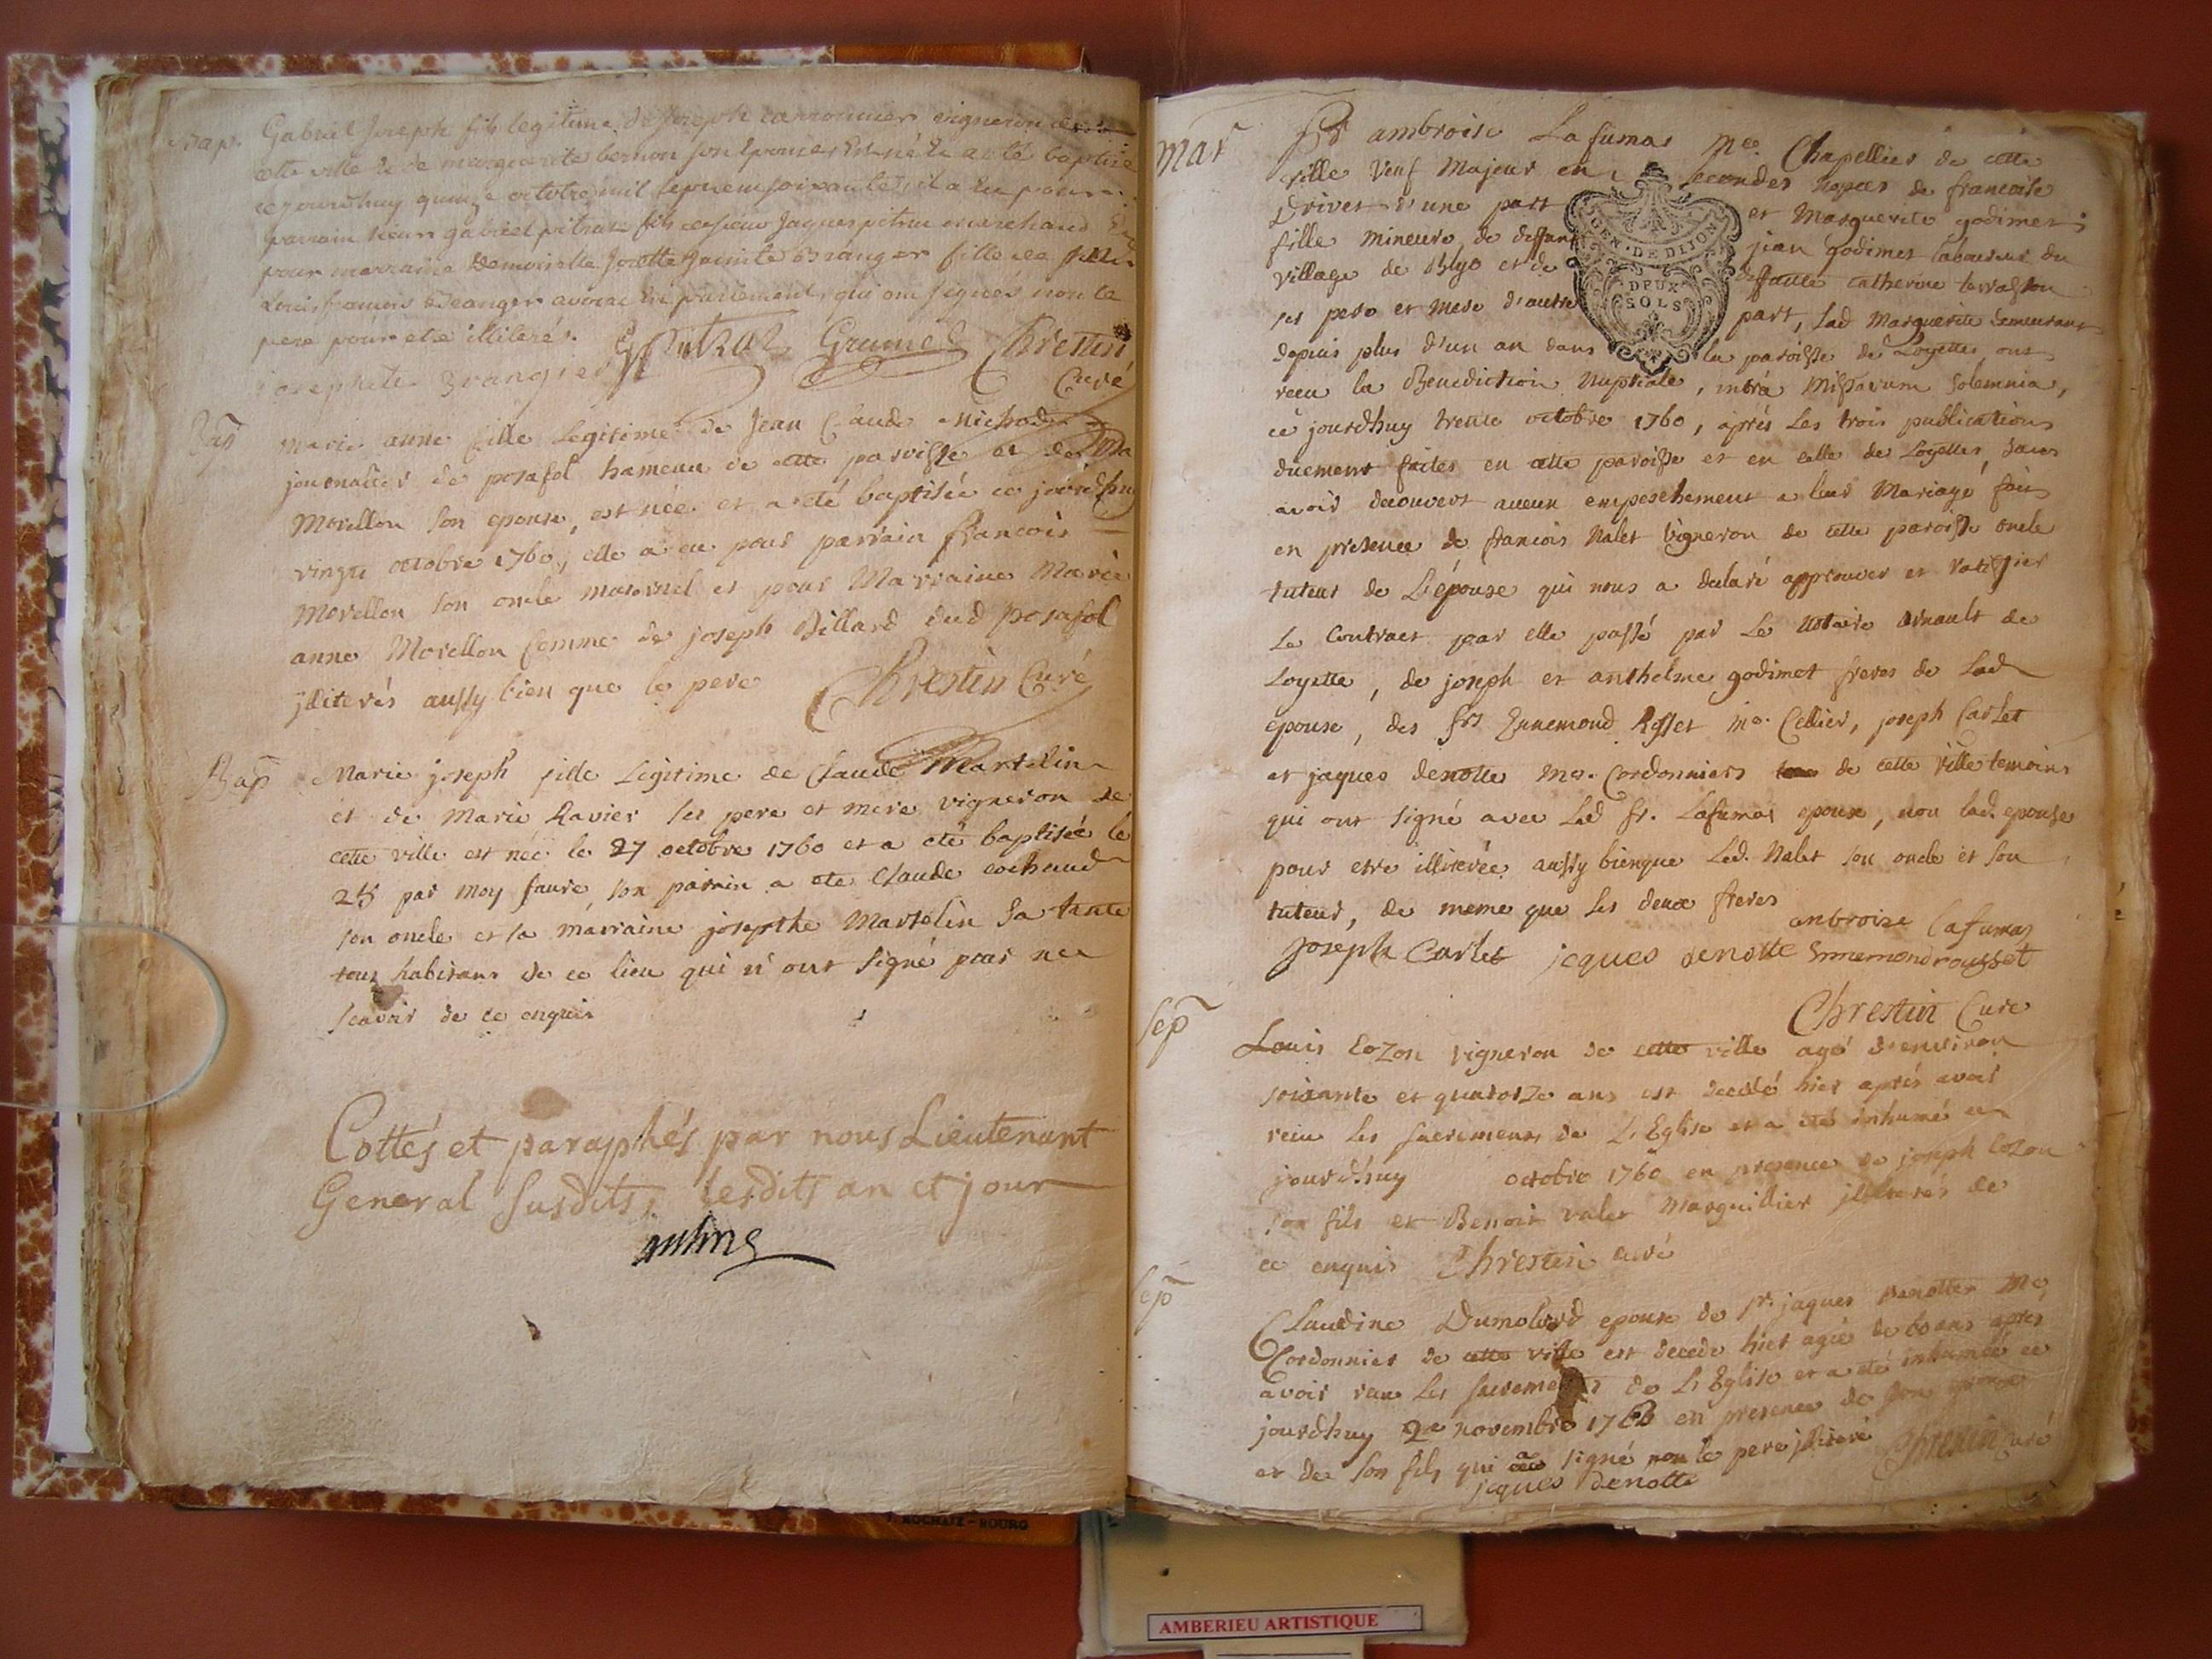 Bap.
Gabriel Joseph fils legitime de Joseph carronnier vigneron de
cette ville et de marguerite bernon son Epouse, Est né Et a eté baptisé
ce jourdhuy quinze octobre mil sept cent soixante, il a Eu pour
parrain sieur gabriel fils de sieur Jaques marchand Et
pour marraine Demoiselle Josette Brangier fille de
Louis francois avocat En parlement, qui ont signés non le
pere pour etre illiteré.
Gramel Chrestin
josephete brangier Curé
Bap
Marie anne fille Legitime de Jean Claude Michod
journallier de posafol hameau de cette paroisse et de
Morellon son epouse, est née et a eté baptisée ce jourdhuy
vingt octobre 1760, elle a eu pour parrain francois
Morellon son oncle maternel et pour Marraine Marie
anne Morellon femme de joseph Billard dud posafol
jlliterés aussy bien que le pere Chrestin Curé
Bap
Marie joseph fille Legitime de Claude Martelin
et de Marie Ravier ses pere et mere vigneron de
cette ville est née le 27 octobre 1760 et a eté baptisée le
28 par moy faure, son parain a ete Claude cochaud
son oncle et sa marraine josepthe Martelin sa tante
tous habitans de ce lieu qui n'ont signé pour ne
scavoir de ce enquis
Cottés et paraphés par nous Lieutenant
General susdits, lesdits an et jour
Mar
Sr ambroise Lafumas Me. Chapellier de cette
ville Veuf Majeur en secondes nopces de francoise
Drivet d'une part et Marguerite godimet
fille mineure de deffunt jean godimet laboureur du
village de Blyo et de deffunte catherine terrasson
ses pere et mere d'autre part, lad Marguerite demeurant
depuis plus d'un an dans la paroisse de Loyettes, ont
receu la Benediction Nuptiale, intrà Missarum solemnia,
ce jourdhuy trente octobre 1760, après Les trois publications
duement faites en cette paroisse et en celle de Loyettes, sans
avoir decouvert aucun empeschement a leur Mariage fait
en presence de francois Nalet vigneron de cette paroisse oncle
tuteur de L'épouse qui nous a declaré approuver et ratiffier
Le Contract par elle passé par Le Notaire arnault de
Loyette, de joseph et anthelme godimet freres de Lad
epouse, des srs Ennemond Rosset me. Cellier, joseph Carlet
et jaques denotte mes. Cordonniers de cette ville temoins
qui ont signé avec Led sr. Lafumas epoux, non lad. epouse
pour etre illiterée aussy bienque Led. Nalet son oncle et son
tuteur, de meme que les deux freres
ambroise lafumas
Joseph Carlet jcques denotte Ennemond rousset
Chrestin Curé
Sep
Louis Cozon vigneron de cette ville agé d'environ
soixante et quatorze ans est decedé hier après avoir
recu les sacremens de L'Eglise et a eté inhumé ce
jourdhuy octobre 1760 en presence de joseph Cozon
son fils et Benoit valet Marguillier jlliterés de
ce enquis Chrestin curé
Sep
Claudine Dumolard epouse de sr. jaques Denotte Me
Cordonnier de cette ville est decede hier agée de 60 ans apres
avoir recu les sacremens de L'Eglise et a eté inhumée ce
jourdhuy 2e novembre 1760 en presence de son epoux
et de son fils qui a signé non le pere jlliteré Chrestin curé
jcques denotte
GEN. DE DIJON
DEUX
SOLS
ROCHAIX-BOURG
AMBERIEU ARTISTIQUE